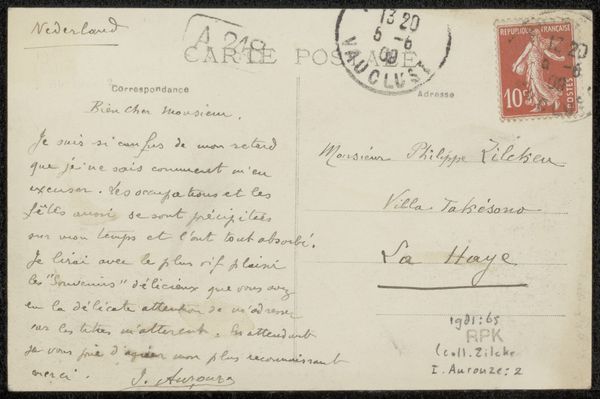 Nederland
A 218
CARTE POSTALE
13 20
5 - 6
09
VAUCLUSE
REPUBLIQUE FRANÇAISE
10c
POSTES
13 20
6
09
Correspondance
Adresse
Bien cher Monsieur.
Je suis si confus de mon retard
que je ne sais comment m'en
excuser. Les occupations et les
fêtes aussi se sont précipitées
sur mon temps et l'ont tout absorbé.
Je lirai avec le plus vif plaisir
les "Souvenirs" délicieux que vous avez
eu la délicate attention de m'adresser
sur les titres m'attirent. En attendant
je vous prie d'agréer mon plus reconnaissant
merci.
J. Aurouze
Monsieur Philippe Zilcken
Villa Takésono
La Haye
1981:65
RPK
(coll. Zilcke
I. Aurouze: 2